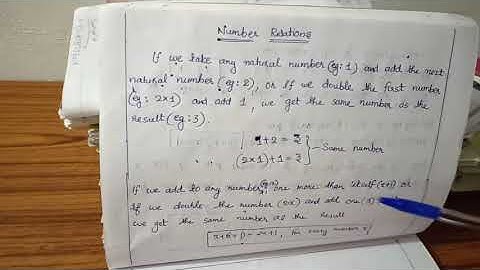 Number Relations
If we take any natural number (eg: 1) and add the next
natural number (eg: 2), or If we double the first number
(eg: 2x1) and add 1, we get the same number as the
result (eg: 3).
1+2 = 3
Same number
(2x1)+1 = 3
If we add to any number, one more than itself (x+1) or
If we double the number (2x) and add one (1)
we get the same number as the result
= 2x+1, for every number x